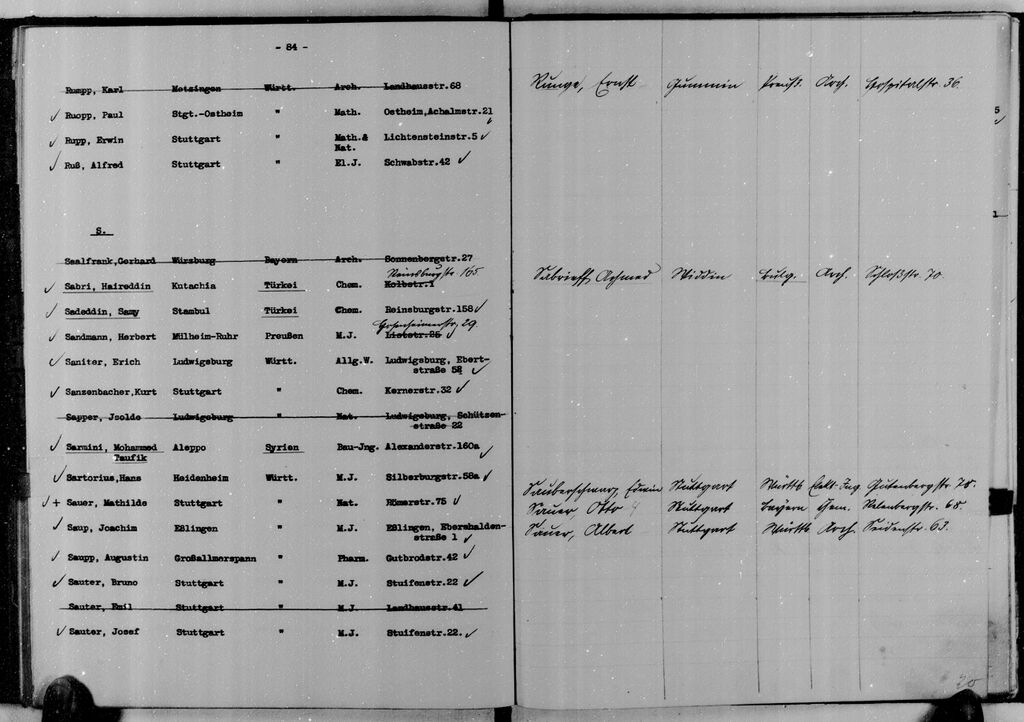 - 84 -
Rumpp, Karl Metzingen Württ. Arch. Landhausstr.68
Ruopp, Paul Stgt.-Ostheim " Math. Ostheim,Achalmstr.21
Rupp, Erwin Stuttgart " Math.& Lichtensteinstr.5
Nat.
Ruß, Alfred Stuttgart " El.J. Schwabstr.42
S.
Saalfrank,Gerhard Würzburg Bayern Arch. Sonnenbergstr.27
Reinsburgstr. 165
Sabri, Haireddin Kutachia Türkei Chem. Kolbstr.1
Sadeddin, Samy Stambul Türkei Chem. Reinsburgstr.158
29.
Sandmann, Herbert Mülheim-Ruhr Preußen M.J. Liststr.25
Saniter, Erich Ludwigsburg Württ. Allg.W. Ludwigsburg, Ebert-
straße 58
Sanzenbacher,Kurt Stuttgart " Chem. Kernerstr.32
Sapper, Jsolde Ludwigsburg " Nat. Ludwigsburg, Schützen-
straße 22
Sarmini, Mohammed Aleppo Syrien Bau-Jng. Alexanderstr.160a
Taufik
Sartorius,Hans Heidenheim Württ. M.J. Silberburgstr.58a
+ Sauer, Mathilde Stuttgart " Nat. Römerstr.75
Saup, Joachim Eßlingen " M.J. Eßlingen, Ebershalden-
straße 1
Saupp, Augustin Großallmerspann " Pharm. Gutbrodstr.42
Sauter, Bruno Stuttgart " M.J. Stuifenstr.22
Sauter, Emil Stuttgart " M.J. Landhausstr.41
Sauter, Josef Stuttgart " M.J. Stuifenstr.22.
Runge, Ernst Gummin Preuß. Arch. Hospitalstr. 36.
Sabrieff, Achmed Widdin Bulg. Arch. Schloßstr. 70
Sauberschwarz, Edwin Stuttgart Württb. Elekt. Ing Gutenbergstr 78.
Sauer Otto Stuttgart Bayern Chem. 65.
Sauer, Albert Stuttgart Württb. Arch. Seidenstr. 63.
5
1
20